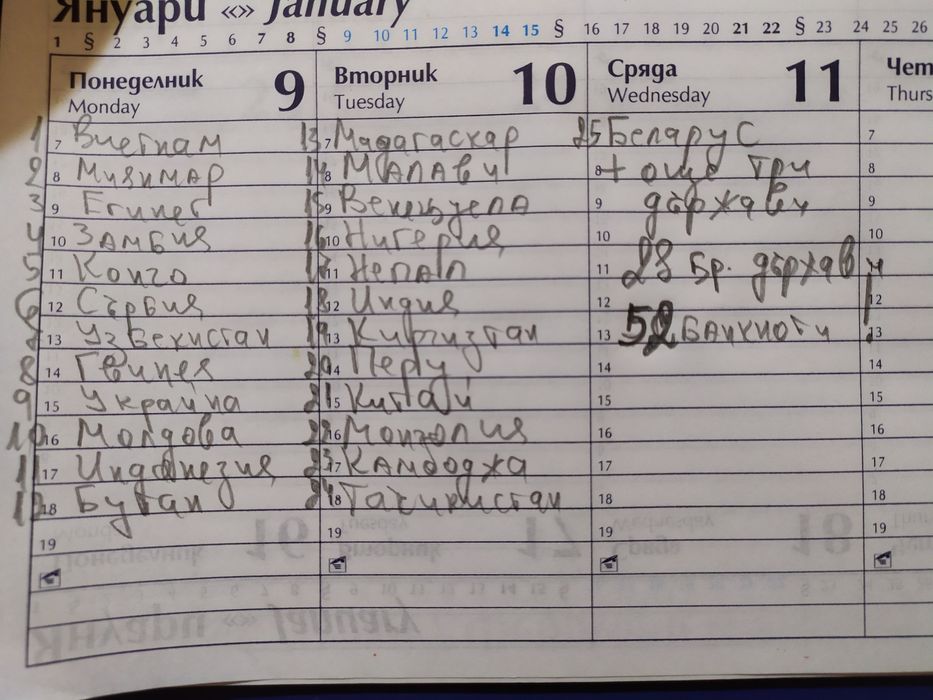 Януари «» January
1 § 2 3 4 5 6 7 8 § 9 10 11 12 13 14 15 § 16 17 18 19 20 21 22 § 23 24 25 26
Понеделник 9
Monday
1 7 Виетнам
2 8 Миянмар
3 9 Египет
4 10 Замбия
5 11 Конго
6 12 Сърбия
13 Узбекистан
8 14 Гвинея
9 15 Украйна
10 16 Молдова
11 17 Индонезия
12 18 Бутан
19
Вторник 10
Tuesday
13 7 Мадагаскар
14 8 Малави
15 9 Венецуела
16 10 Нигерия
17 11 Непал
18 12 Индия
19 13 Киргизтан
20 14 Перу
21 15 Китай
22 16 Монголия
23 17 Камбоджа
24 18 Таджикистан
19
Сряда 11
Wednesday
25 Беларус
8 + още три
9 държави
10
11 28 Бр. държави
12
13 52 Банкноти
14
15
16
17
18
19
Чет
Thurs
7
8
9
10
12
13
14
15
16
17
18
19